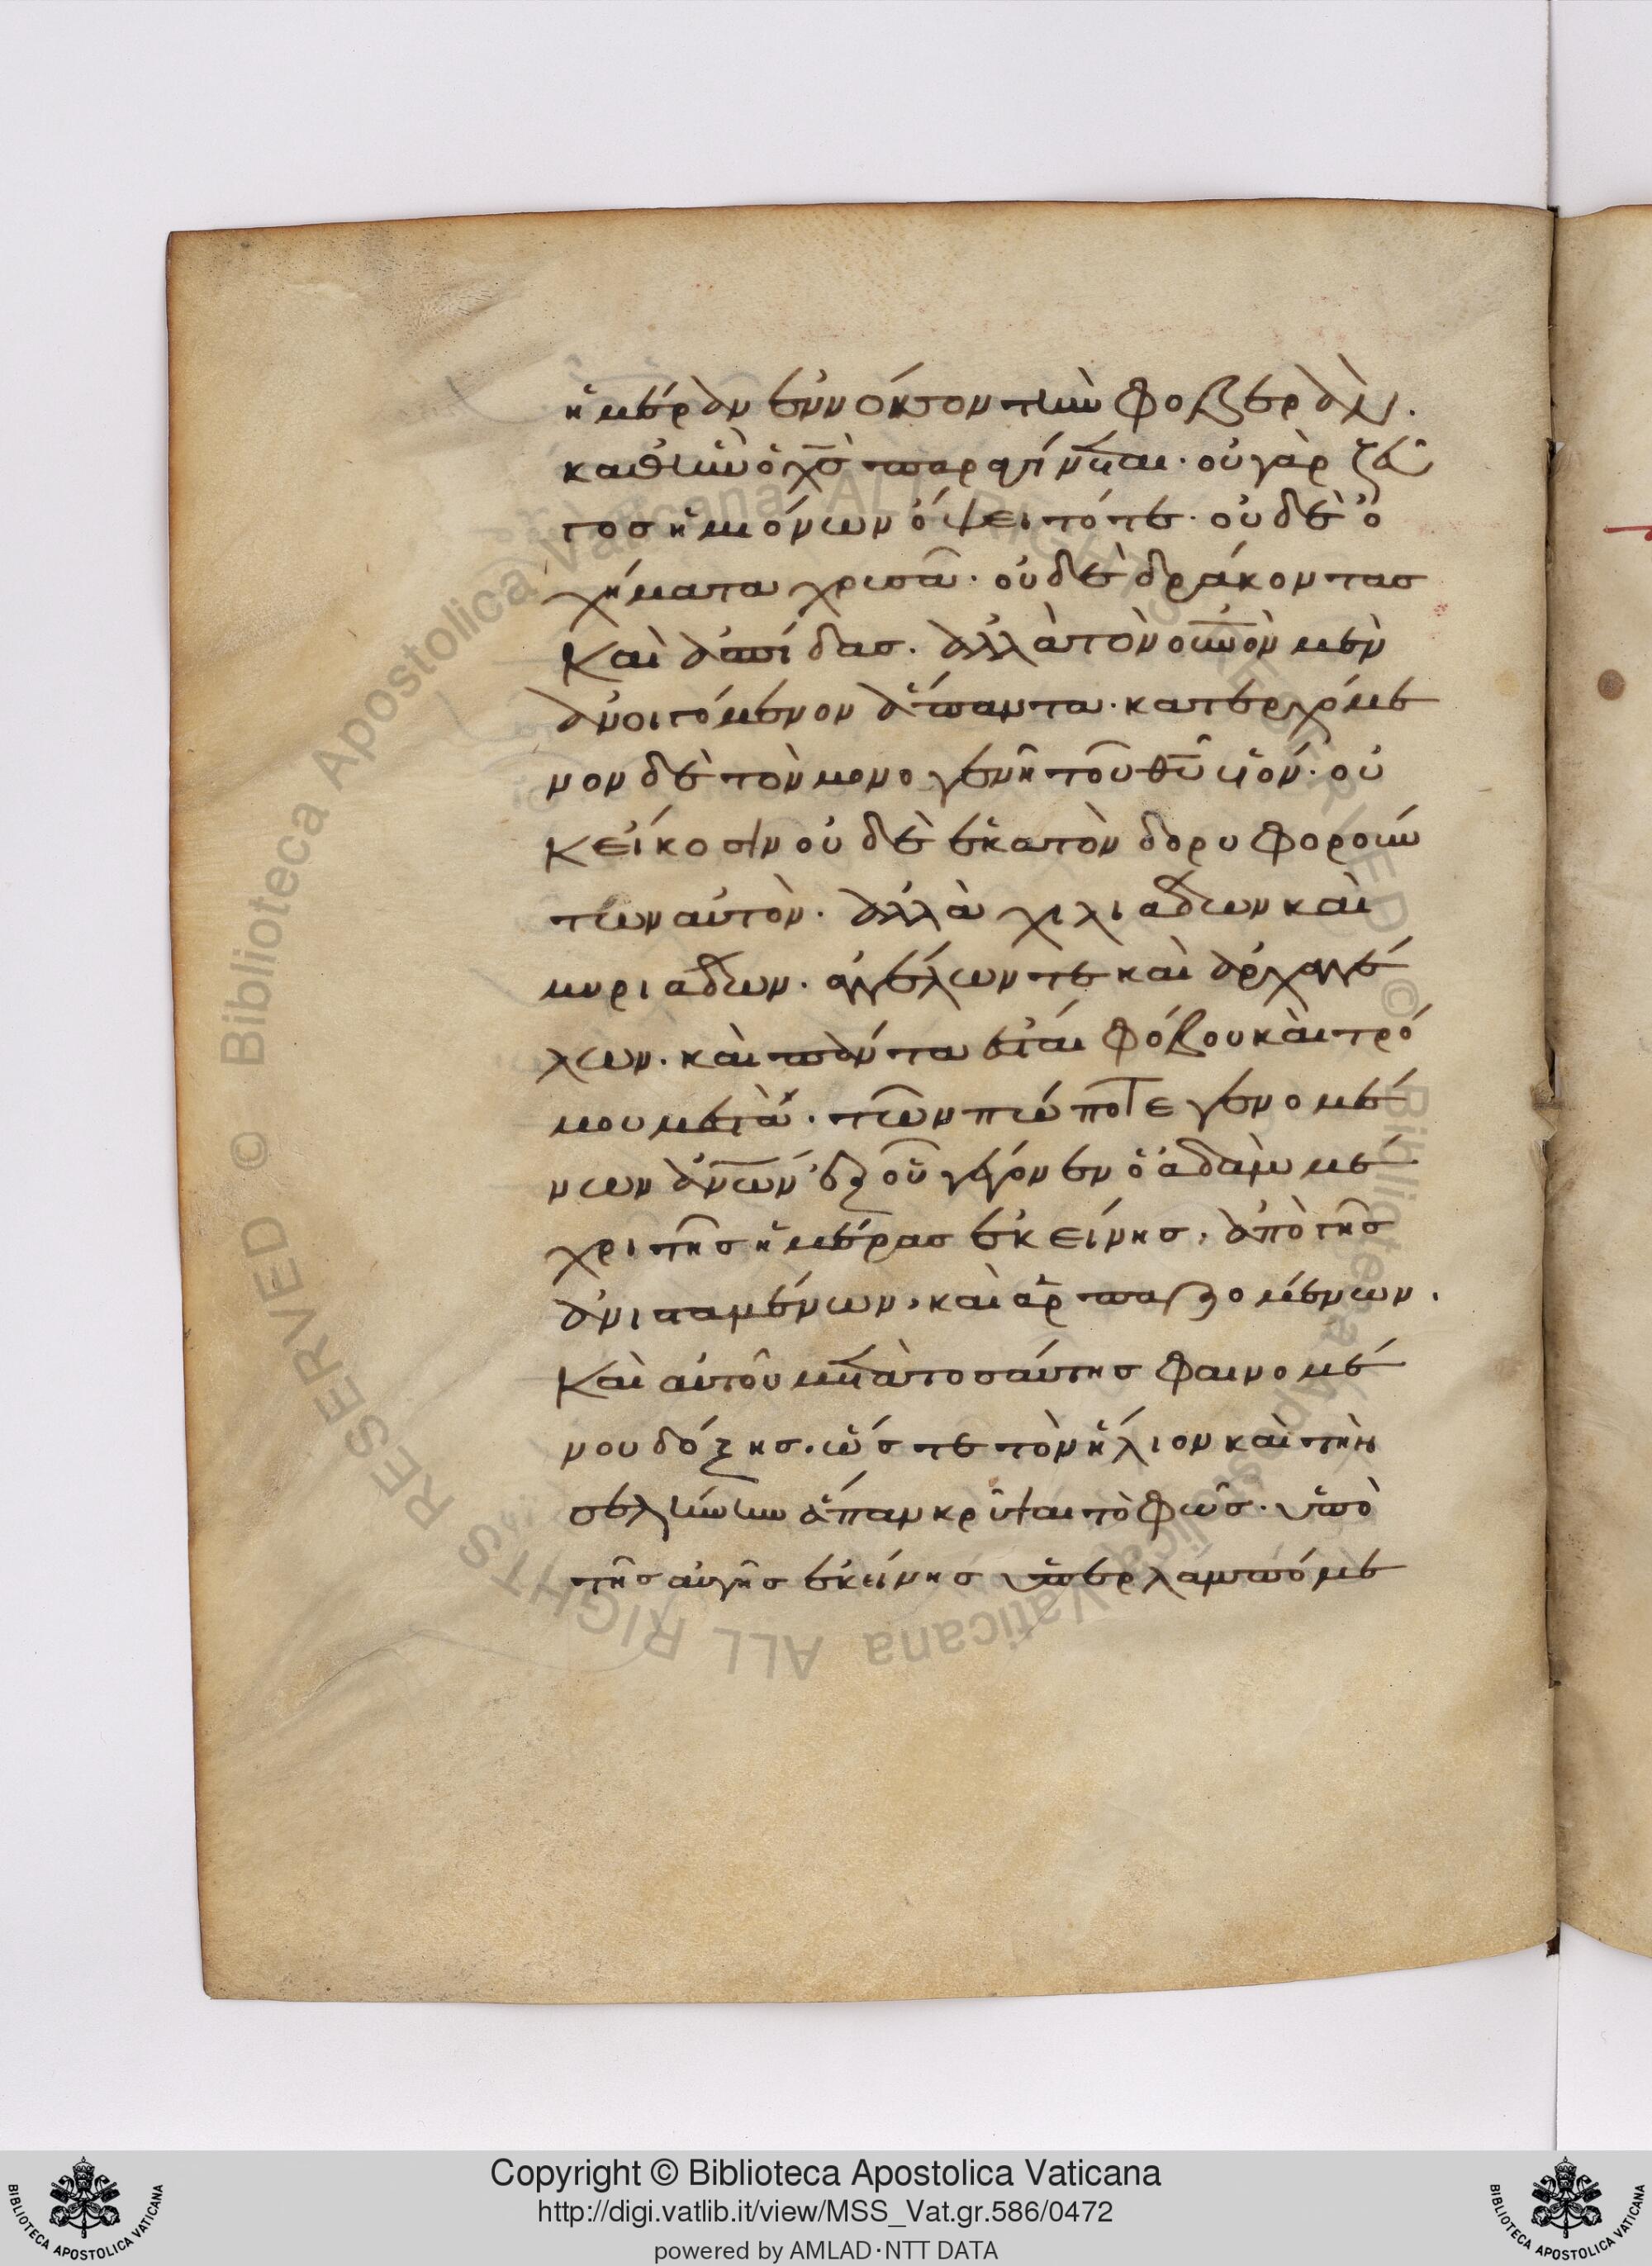 ἡμέραν ἐννόησον τὴν φοβερὰν.
καθ ἣν ὁ χσ παραγίνεται· οὐ γὰρ ζεῦ
γοσ ἡμιόνων ὄψει τότε· οὐδὲ ὀ
χήματα χρυσᾶ· οὐδὲ δράκοντας
Καὶ ἀσπίδασ. ἀλλὰ τὸν οὐνὸν μὲν
ἀνοιγόμενον ἅπαντα· κατερχόμε
νον δὲ τὸν μονογενῆ τοῦ θυ υἱόν· οὐ
κ εἴκοσιν οὐδὲ ἑκατὸν δορυφορούν
των αὐτὸν· ἀλλὰ χιλιάδων καὶ
μυριάδων· ἀγγέλων τε καὶ ἀρχαγγέ
λων. καὶ πάντα εἶναι φόβου καὶ τρό
μου μεστὰ. τῶν πώποτε γενομέ
νων ἀνων ἐξ οὗ γέγονεν ὁ ἀδὰμ μέ
χρι τῆσ ἡμέρασ ἐκείνησ, ἀπὸ γῆσ
ἀνισταμένων, καὶ ἁρπαζομένων.
Καὶ αὐτοῦ μετὰ τοσαύτησ φαινομέ
νου δόξησ. ὥστε τὸν ἥλιον καὶ τὴν
σελήνην ἅπαν κρύψαι τὸ φῶσ. ὑπὸ
τῆσ αὐγῆσ ἐκείνησ ὑπερλαμπόμε
Copyright © Biblioteca Apostolica Vaticana
http://digi.vatlib.it/view/MSS_Vat.gr.586/0472
powered by AMLAD·NTT DATA